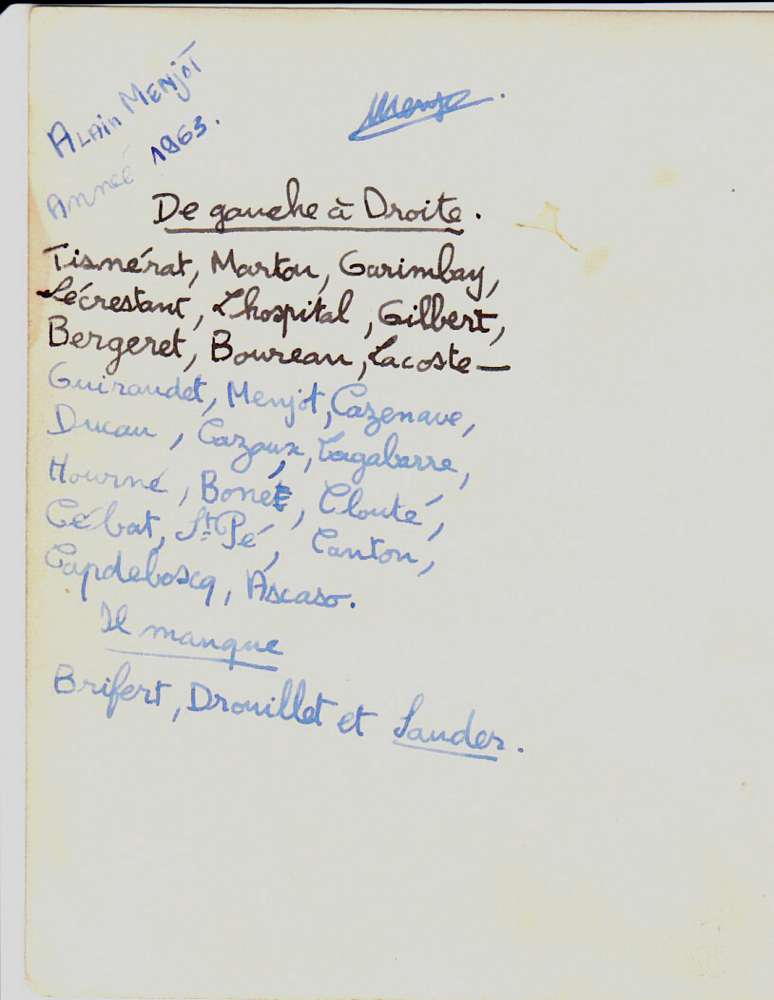 Alain MENJOT
Année 1963.
Menjot.
De gauche à Droite.
Tisnérat, Martou, Garimbay,
Lécrestant, Lhospital, Gilbert,
Bergeret, Boureau, Lacoste—
Guiraudet, Menjot, Cazenave,
Ducau, Cazaux, Lagabarre,
Hourné, Bonet, Clouté,
Cébat, St Pé, Canton,
Capdeboscq, Ascaso.
Il manque
Brifert, Drouillet et Sauder.